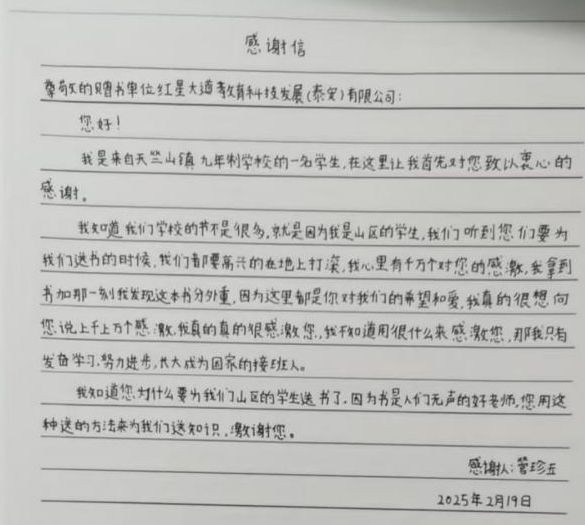 感谢信
尊敬的赠书单位红星大道教育科技发展(泰安)有限公司:
您好!
我是来自天竺山镇九年制学校的一名学生,在这里让我首先对您致以衷心的
感谢。
我知道我们学校的书不是很多,就是因为我是山区的学生,我们听到您们要为
我们送书的时候,我们都要高兴的在地上打滚,我心里有千万个对您的感激,我拿到
书加那一刻我发现这本书分外重,因为这里都是你对我们的希望和爱,我真的很想向
您说上千上万个感激,我真的真的很感激您,我不知道用很什么来感激您,那我只有
发奋学习,努力进步,长大成为国家的接班人。
我知道您为什么要为我们山区的学生送书了,因为书是人们无声的好老师,您用这
种送的方法来为我们送知识,激谢您。
感谢人:管珍五
2025年2月19日